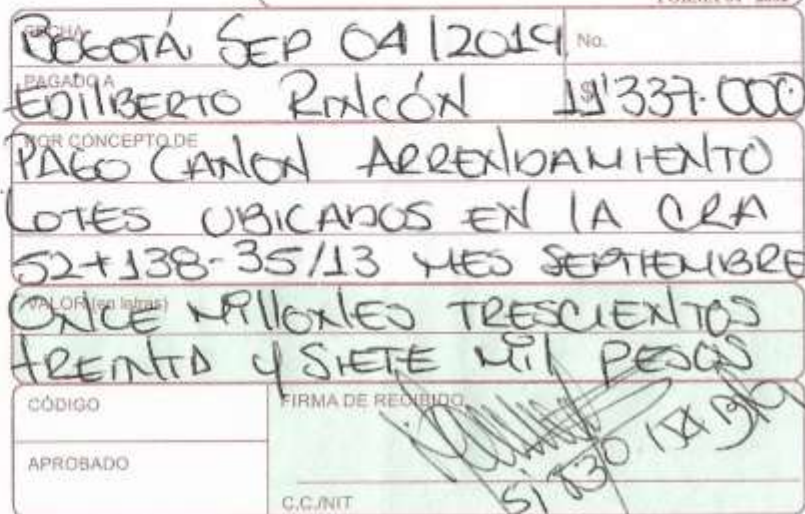 FECHA No.
BOGOTÁ SEP 04 / 2019
PAGADO A $
EDILBERTO RINCÓN 11'337.000
POR CONCEPTO DE
PAGO CANON ARRENDAMIENTO
LOTES UBICADOS EN LA CRA
52 + 138-35/13 MES SEPTIEMBRE
VALOR (en letras)
ONCE MILLONES TRESCIENTOS
TREINTA Y SIETE MIL PESOS
CÓDIGO FIRMA DE RECIBIDO
APROBADO
C.C./NIT